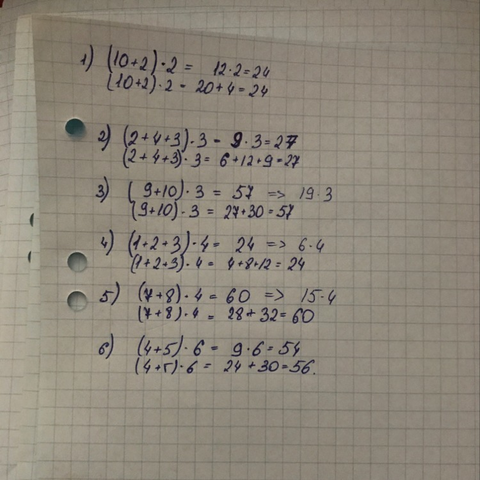 1) (10+2)·2 = 12·2=24
(10+2)·2 = 20+4=24
2) (2+4+3)·3 = 9·3=27
(2+4+3)·3= 6+12+9=27
3) (9+10)·3 = 57 => 19·3
(9+10)·3 = 27+30=57
4) (1+2+3)·4= 24 => 6·4
(1+2+3)·4= 4+8+12= 24
5) (7+8)·4 = 60 => 15·4
(7+8)·4 = 28+32=60
6) (4+5)·6 = 9·6=54
(4+5)·6 = 24+30=56.